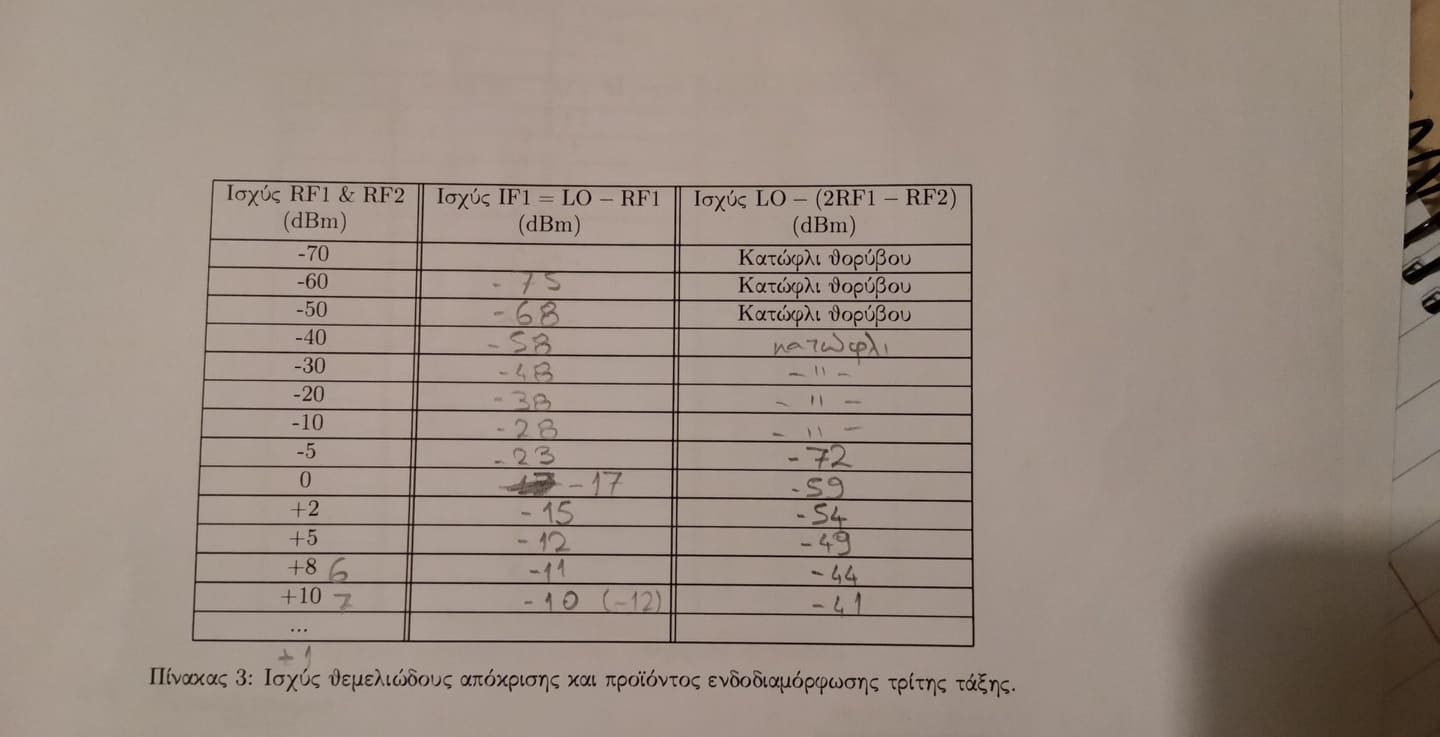 Ισχύς RF1 & RF2 Ισχύς IF1 = LO − RF1 Ισχύς LO − (2RF1 − RF2)
(dBm) (dBm) (dBm)
-70 Κατώφλι θορύβου
-60 - 75 Κατώφλι θορύβου
-50 - 68 Κατώφλι θορύβου
-40 - 58 κατώφλι
-30 - 48 - " -
-20 - 38 - " -
-10 - 28 - " -
-5 - 23 - 72
0 - 17 - 59
+2 - 15 - 54
+5 - 12 - 49
+8 6 - 11 - 44
+10 7 - 10 (-12) - 41
...
+ 1
Πίνακας 3: Ισχύς θεμελιώδους απόκρισης και προϊόντος ενδοδιαμόρφωσης τρίτης τάξης.